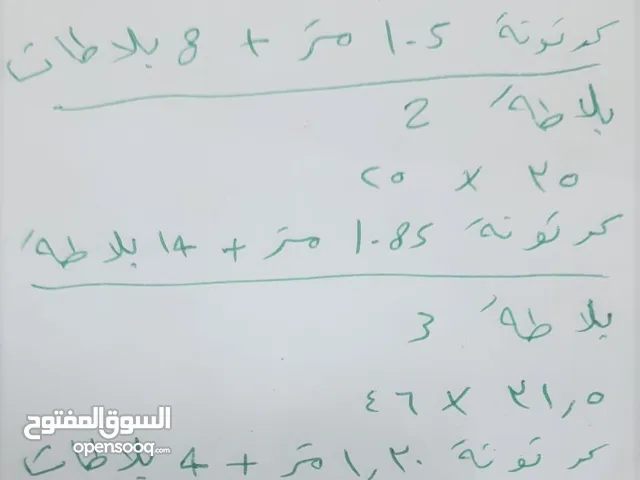 كرتونة 1.5 متر + 8 بلاطات
بلاطة 2
٢٥ × ٣٥
كرتونة 1.85 متر + 14 بلاطة
بلاطة 3
٣١,٥ × ٤٦
كرتونة ١,٣٠ متر + 4 بلاطات
السوق المفتوح
opensooq.com